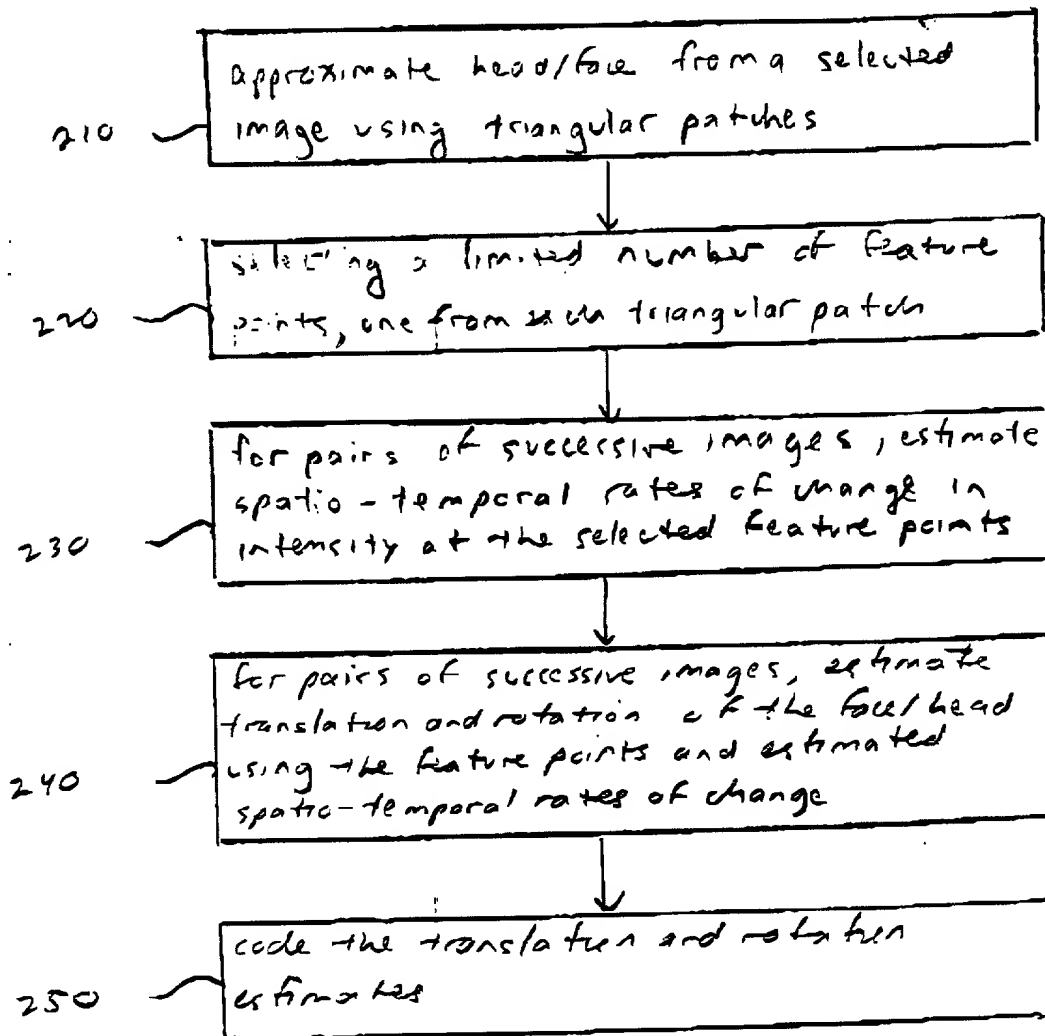 approximate head/face from a selected
210
image using triangular patches
selecting a limited number of feature
220
points, one from each triangular patch
for pairs of successive images, estimate
spatio-temporal rates of change in
230
intensity at the selected feature points
for pairs of successive images, estimate
translation and rotation of the face/head
240
using the feature points and estimated
spatio-temporal rates of change
code the translation and rotation
250
estimates